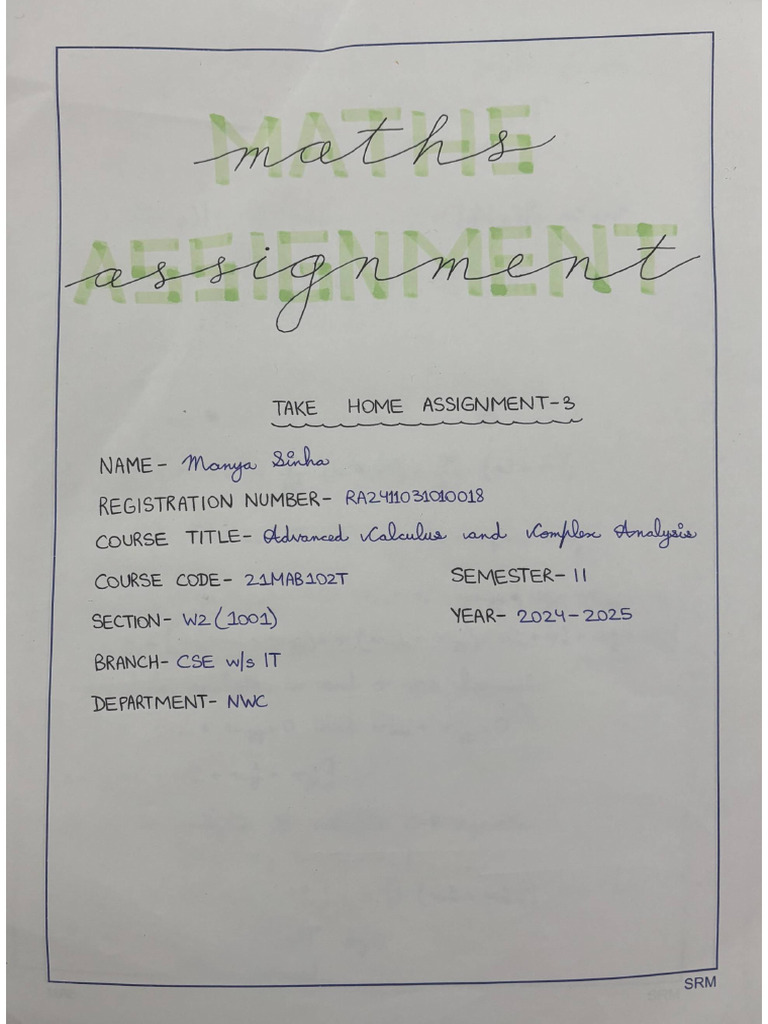 MATHS
maths
ASSIGNMENT
assignment
TAKE HOME ASSIGNMENT-3
NAME- Manya Sinha
REGISTRATION NUMBER- RA2411031010018
COURSE TITLE- Advanced Calculus and Complex Analysis
COURSE CODE- 21MAB102T SEMESTER- II
SECTION- W2 (1001) YEAR- 2024-2025
BRANCH- CSE w/s IT
DEPARTMENT- NWC
SRM